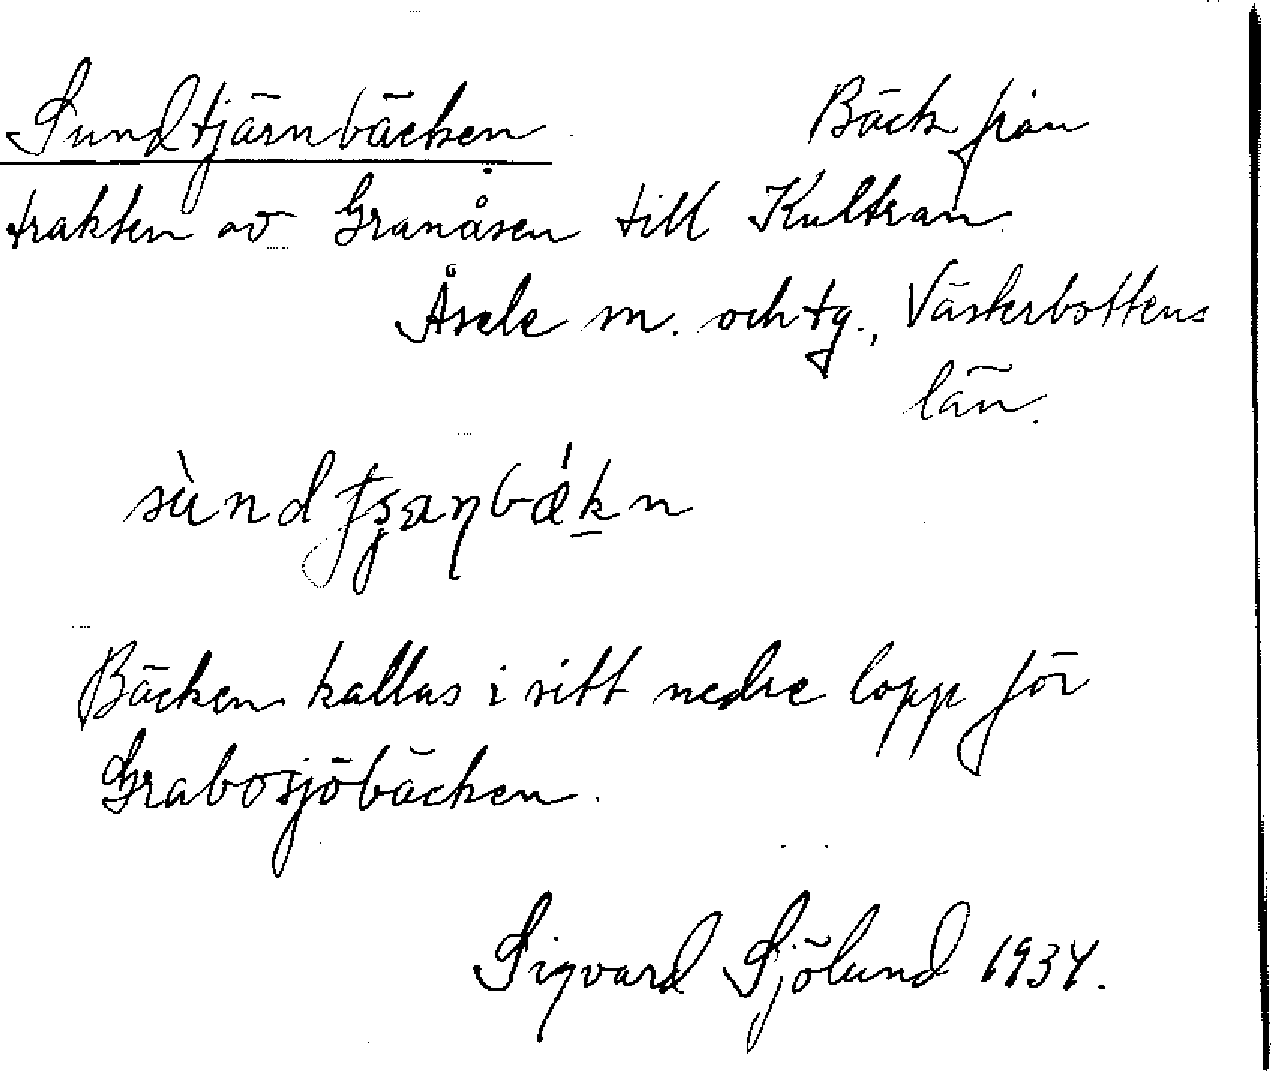 Sundtjärnbäcken Bäck från
trakten av Granåsen till Kultran
Åsele sn. och tg., Västerbottens
län.
Bäcken kallas i sitt nedre lopp för
Grabosjöbäcken.
Sigvard Sjölund 1934.